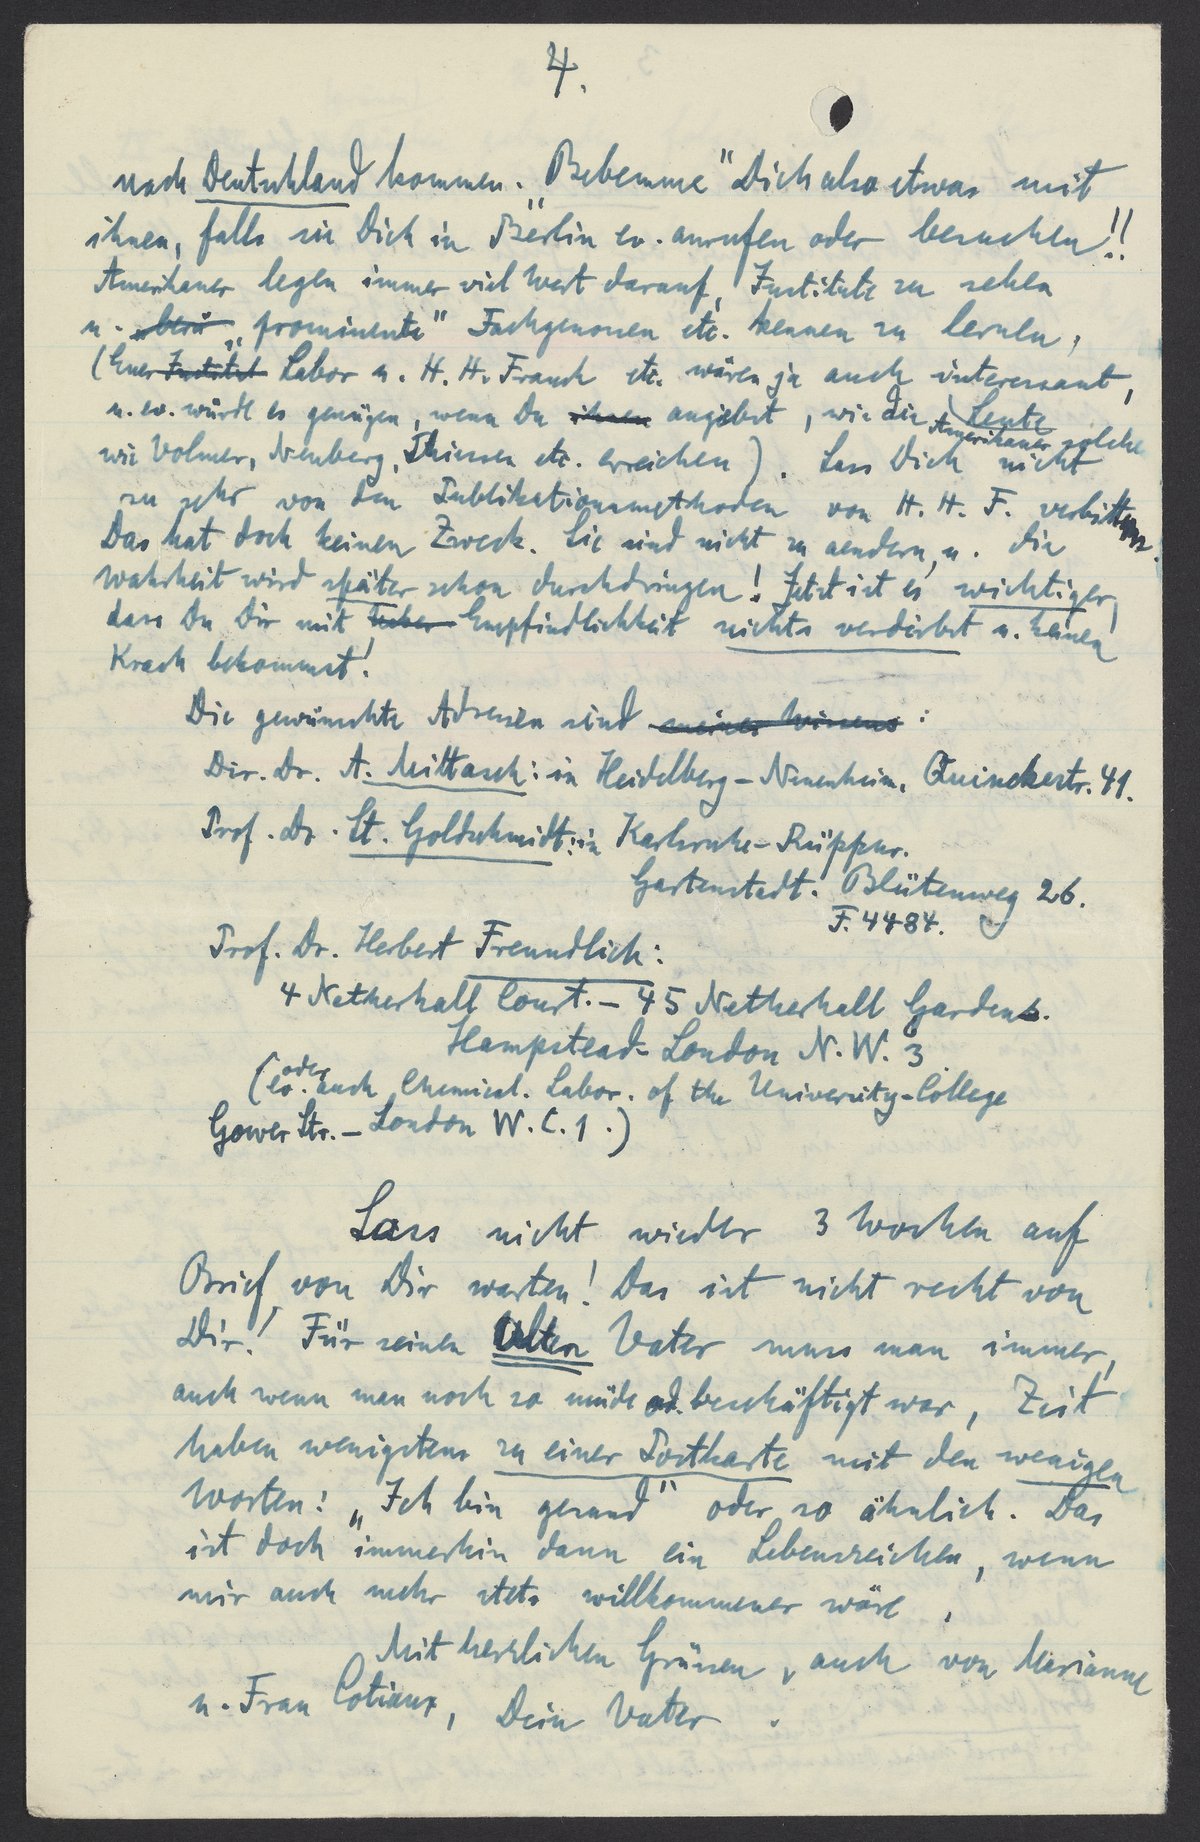 4.
nach Deutschland kommen. „Bebemme" Dich also etwas mit
ihnen, falls sie Dich in Berlin ev. anrufen oder besuchen!!
Amerikaner legen immer viel Wert darauf, Institute zu sehen
u. „berü „prominente" Fachgenossen etc. kennen zu lernen,
(Euer Institut Labor u. H. H. Franck etc. wären ja auch interessant,
u. ev. würde es genügen, wenn Du ihnen angiebst, wie die Leute
Amerikaner solche
wie Volmer, Neuberg, Thiessen etc. erreichen). Lass Dich nicht
zu sehr von den Publikationsmethoden von H. H. F. verbittern.
Das hat doch keinen Zweck. Sie sind nicht zu aendern, u. die
Wahrheit wird später schon durchdringen! Jetzt ist es wichtiger,
dass Du Dir mit Empfindlichkeit nichts verdirbst u. keinen
Krach bekommst!
Die gewünschte Adressen sind meines Wissens:
Dir. Dr. A. Mittasch: in Heidelberg-Neuenheim. Quinckestr. 41.
Prof. Dr. St. Goldschmidt: in Karlsruhe-Rüppur.
Gartenstadt. Blütenweg 26.
F. 4484.
Prof. Dr. Herbert Freundlich:
4 Netherhall Court. – 45 Netherhall Gardens.
Hampstead-London N.W. 3
oder
(ev. auch Chemical. Labor. of the University-College
Gower Str. – London W.C.1.)
Lass nicht wieder 3 Wochen auf
Brief von Dir warten! Das ist nicht recht von
Dir! Für seinen alten Vater muss man immer,
auch wenn man noch so müde od. beschäftigt war, Zeit
haben wenigstens zu einer Postkarte mit den wenigen
Worten: „Ich bin gesund" oder so ähnlich. Das
ist doch immerhin dann ein Lebenszeichen, wenn
mir auch mehr stets willkommener wäre.
Mit herzlichen Grüssen, auch von Marianne
u. Frau Cotiaux, Dein Vater.